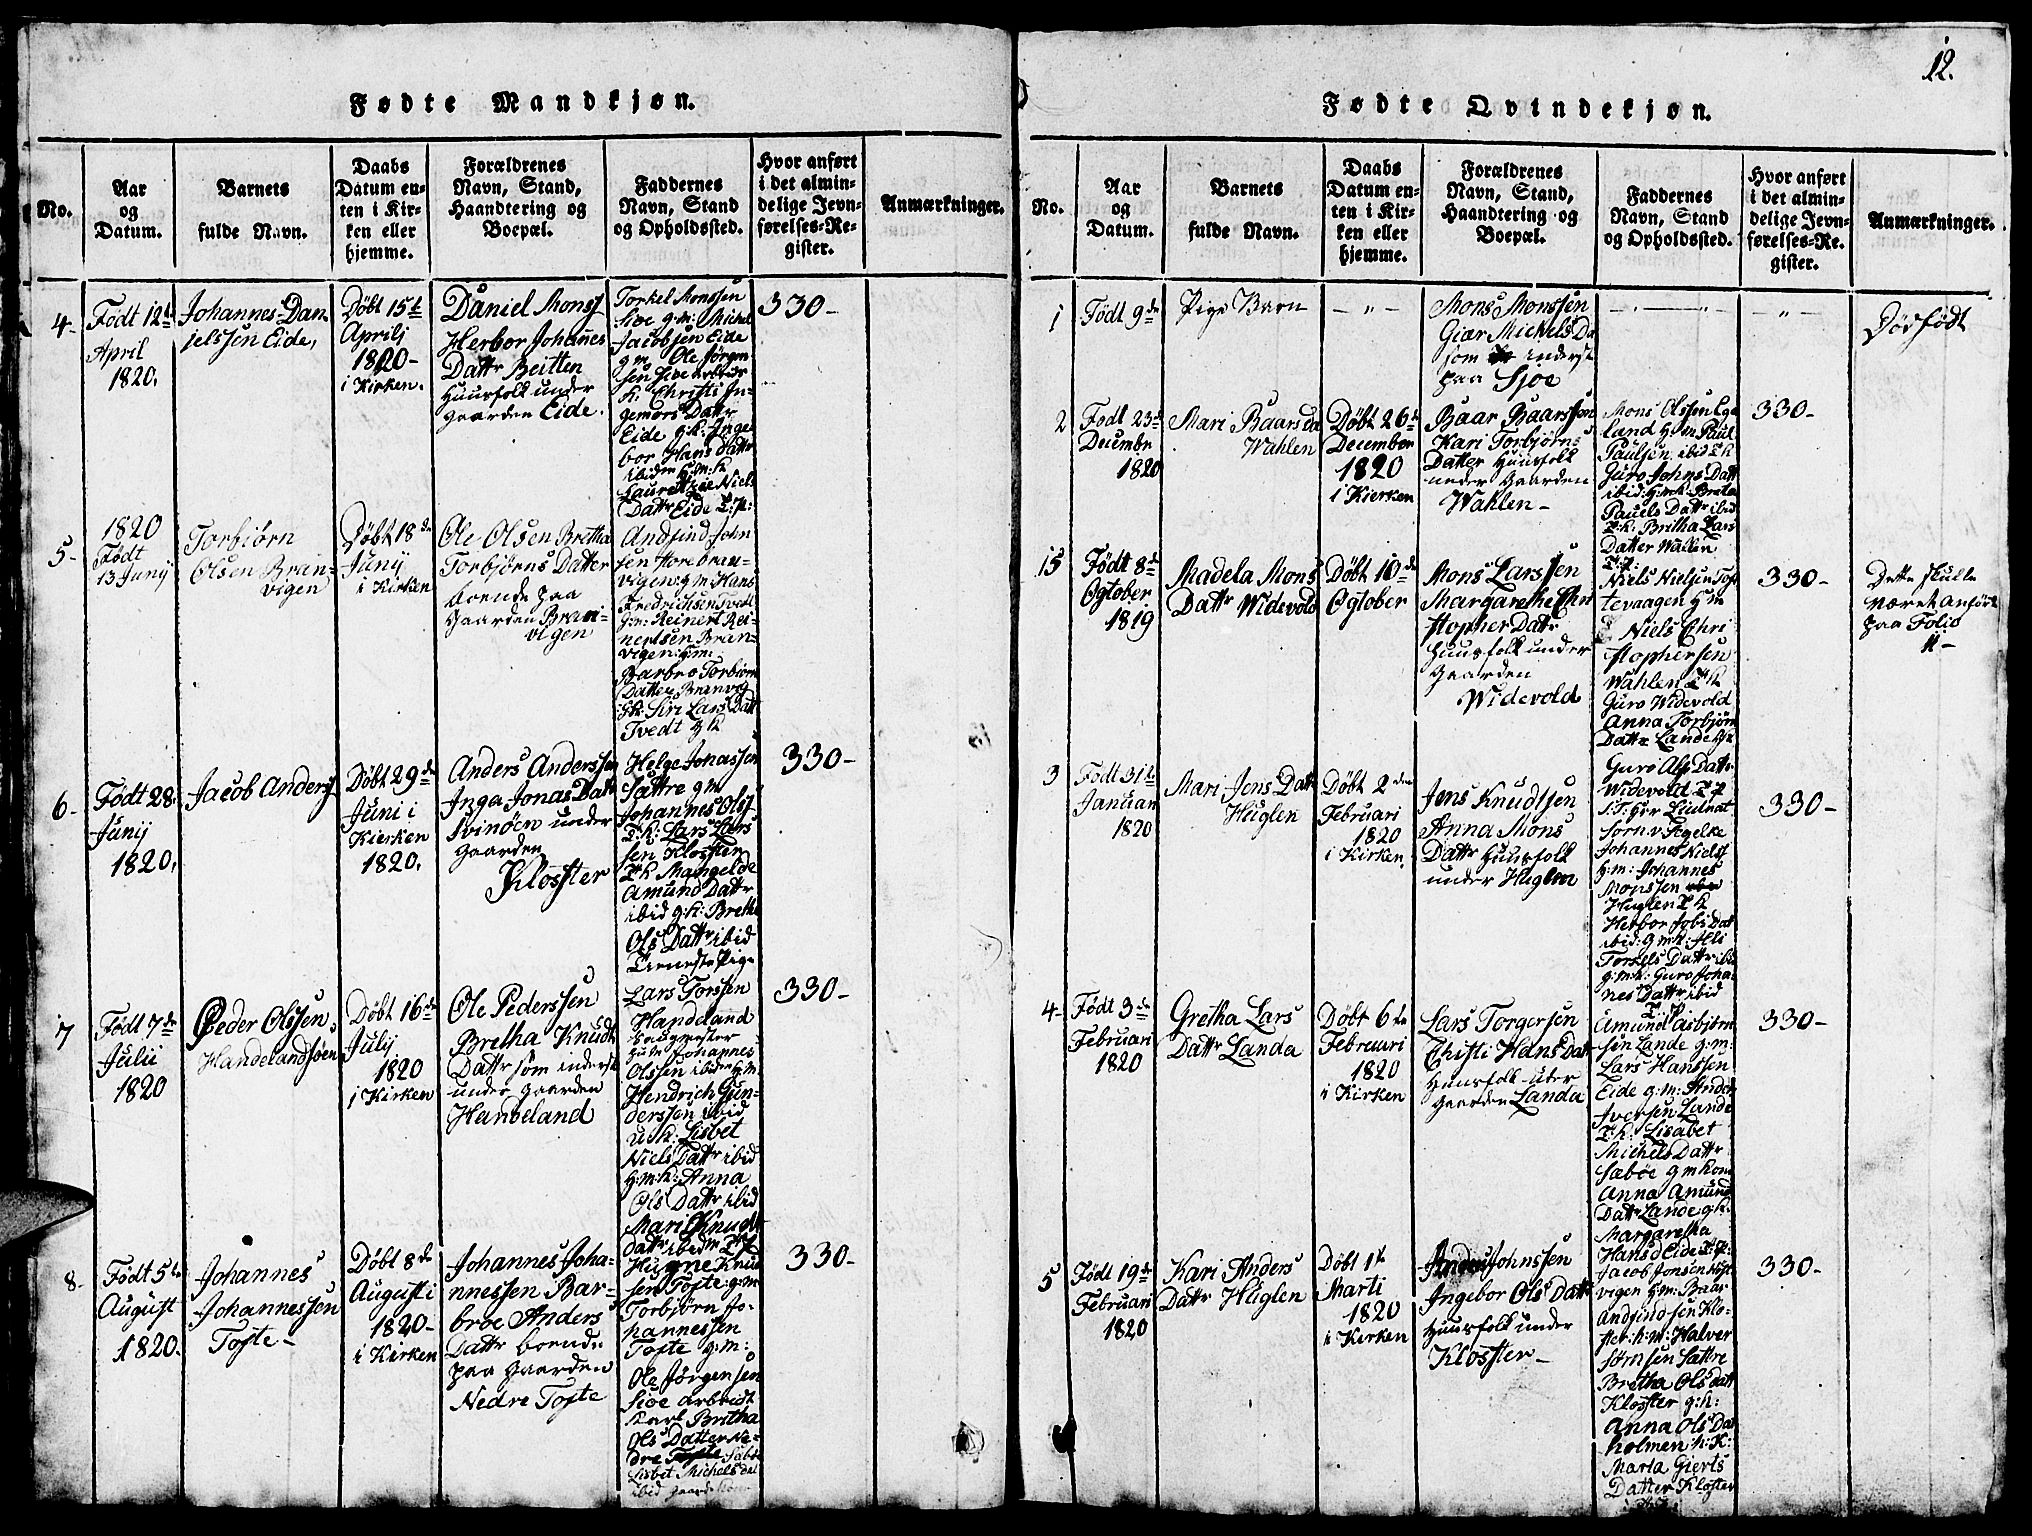 12.
Fødte Mandkjøn.
No.
Aar
og
Datum.
Barnets
fulde Navn.
Daabs
Datum en-
ten i Kir-
ken eller
hjemme.
Forældrenes
Navn, Stand,
Haandtering og
Boepæl.
Faddernes
Navn, Stand
og Opholdssted.
Hvor anført
i det almin-
delige Jevn-
førelses-Re-
gister.
Anmærkninger.
4-
Født 12te
April
1820.
Johannes Dan-
jelssen Eide,
Døbt 15te
Aprilj
1820-
i Kirken.
Daniel Monss
Herbor Johannes
Dattr Beitten
Huusfolk under
gaarden Eide.
Torkel Monssen
Sioe g:m: Michel
Jacobsen Eide
g m Ole Jørgen
sen Sioe
k. Christi In-
gemors Dattr
Eide g:k: Inge
bor Hans Dattr
ibidm g:m:k
Niels
Dattr Eide T:p:
330-
5-
1820
Født
13 Junij
Torbiørn
Olsen Bran-
vigen
Døbt 18de
Junij
i Kirken
Ole Olsen Bretha
Torbjørns Datter
boende paa
Gaarden Bran-
vigen
Andfind John
sen Horebran-
vigen: g:m: Hans
Fredrichsen Tvedt
g:m: Reinert Rei-
nertsen Bran-
vigen: g:m:
Barbro Torbiørn
Datter Branvig
g:k: Siri Lars Datt
Tvedt g k
6-
Født 28
Junij
1820.
Jacob Anderss
Døbt 29de
Juni i
Kierken
1820.
Anders Anderssen
Inga Jonas Datt
Svinøen under
gaarden
Kloster
Helge Jonassen
Sættre g m
Johannes Olss
T:k: Lars Lars
sen Kloster
T k Mangelde
Amund Dattr
ibid g:k: Bretha
Ols Dattr ibid
Tieneste Pige
330-
7
Født 7de
Julii
1820
Peder Olssen
Handelandsøen
Døbt 16de
Julij
1820
i Kirken
Ole Pederssen
Bretha Knudt
Dattr som inderst
under gaarden
Handeland
Lars Torssen
Handeland
Johannes
Olssen ibidm g:m:
Hendrich Gun-
derssen ibid
u:k: Lisbet
Niels Dattr ibid
g:m:k: Anna
Ols Dattr ibid
Mari Knudt
dattr ibidm
330-
8
Født 5te
August
1820.
Johannes
Johannessen
Tofte-
Døbt 8de
Augusti
1820-
i Kirken
Johannes Joha-
nnessen Bar-
broe Anders
Dattr boende
paa gaarden
Nedre Tofte
Knud
sen Tofte: g:m
Torbjørn Jo-
hannessen
Tofte g:m:
Ole Jørgensen
Sioe arbeidt
karl Bretha
Ols Datter Ne-
dre Tofte Sæbø
Lisbet Michels dat
ibid
330-
Fødte Qvindekjøn.
No.
Aar
og
Datum.
Barnets
fulde Navn.
Daabs
Datum en-
ten i Kir-
ken eller
hjemme.
Forældrenes
Navn, Stand,
Haandtering og
Boepæl.
Faddernes
Navn, Stand
og Opholdssted.
Hvor anført
i det almin-
delige Jevn-
førelses-Re-
gister.
Anmærkninger.
1
Født 9de
Pige Barn
- " -
Mons Monssen
Giær Michels Da
som inderst
paa Sjoe
- " -
"
Dødfødt
2
Født 23de
Decembr
1820
Mari Baars da
Wahlen
Døbt 26de
December
1820
i Kierken
Baar Baarssøn
Kari Torbjørns
Datter Huusfolk
under Gaarden
Wahlen-
Mons Olssen Ege
land g:m Paul
Paulsen ibid T:k
Guro Johns Datt
ibid: g:m:k: Breta
Pauels Dattr ibid
T:k: Britha Lars
Datter Wallen
T:p:
330-
15
Født 8de
Ogtober
1819
Madela Mons
Dattr Widevold
Døbt 10de
Ogtober
Mons Larssen
Margarethe Chri
stopher Dattr
Huusfolk under
Gaarden
Widevold
Niels Nielsen Tof
tevaagen g m
Niels Chri
stophersen
Wahlen T k
Guro Widevold
Anna Torbjørn
Dattr Lande g k
Guro Dattr
Widevold T p
330-
Dette skulle
været anført
paa Folio
11-
3
Født 31te
Januari
1820
Mari Jens Datt
Huglen
Døbt 2den
Februari
1820
i Kirken
Jens Knudtsen
Anna Mons
Dattr Huusfolk
under Huglen
Johannes Nielss
g:m: Johannes
Monssen
Huglen T k
Herbor Jobs Datt
ibid: g m k: Illi
Torkels Dattr ibid
g:m:k: Guro Joha-
nes Dattr ibid
T p
330-
4-
Født 3de
Februari
1820
Gretha Lars
Dattr Landa
Døbt 6te
Februari
1820
i Kirken
Lars Torgersen
Christi Hans Datt
Huusfolk uter
gaarden Landa
Amund Asbjørn
sen Lande g:m:
Lars Hanssen
Eide g:m: Anders
Iversen Lande
T:k: Lisabet
Michels Dattr
Sæbøe g m kone
Anna Amund
Dattr Lande g:k:
Margaretha
Hans d Eide T:p:
330-
5
Født 19de
Februari
1820
Kari Anders
Dattr Huglen
Døbt 1te
Marti
1820
i Kirken
Anders Johnssen
Ingebor Ols Datt
Huusfolk under
Kloster-
Jacob Jonsen
vigen g:m: Baar
Andfindsen Klo-
ster: h:m: Halver
Sørnsen Sættre
Bretha Ols datt
Kloster g:k:
Anna Ols Dat
holmen: h:k:
Marta Gierts
Datter Kloster
330-